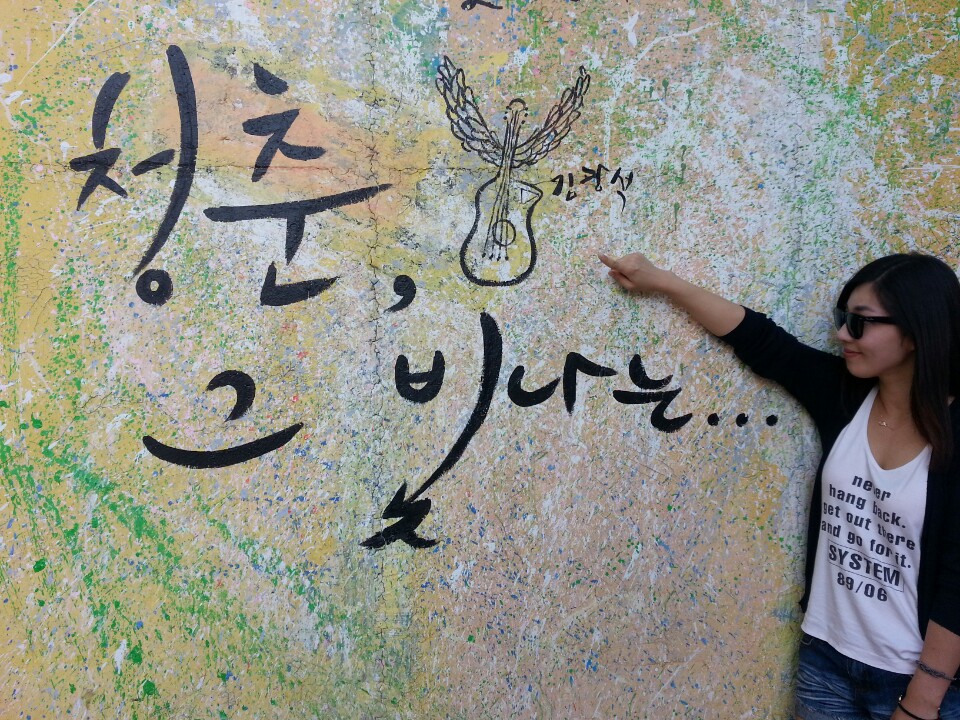 청춘,
김창석
그 빛나는...
never
hang back.
get out there
and go for it.
SYSTEM
89/06